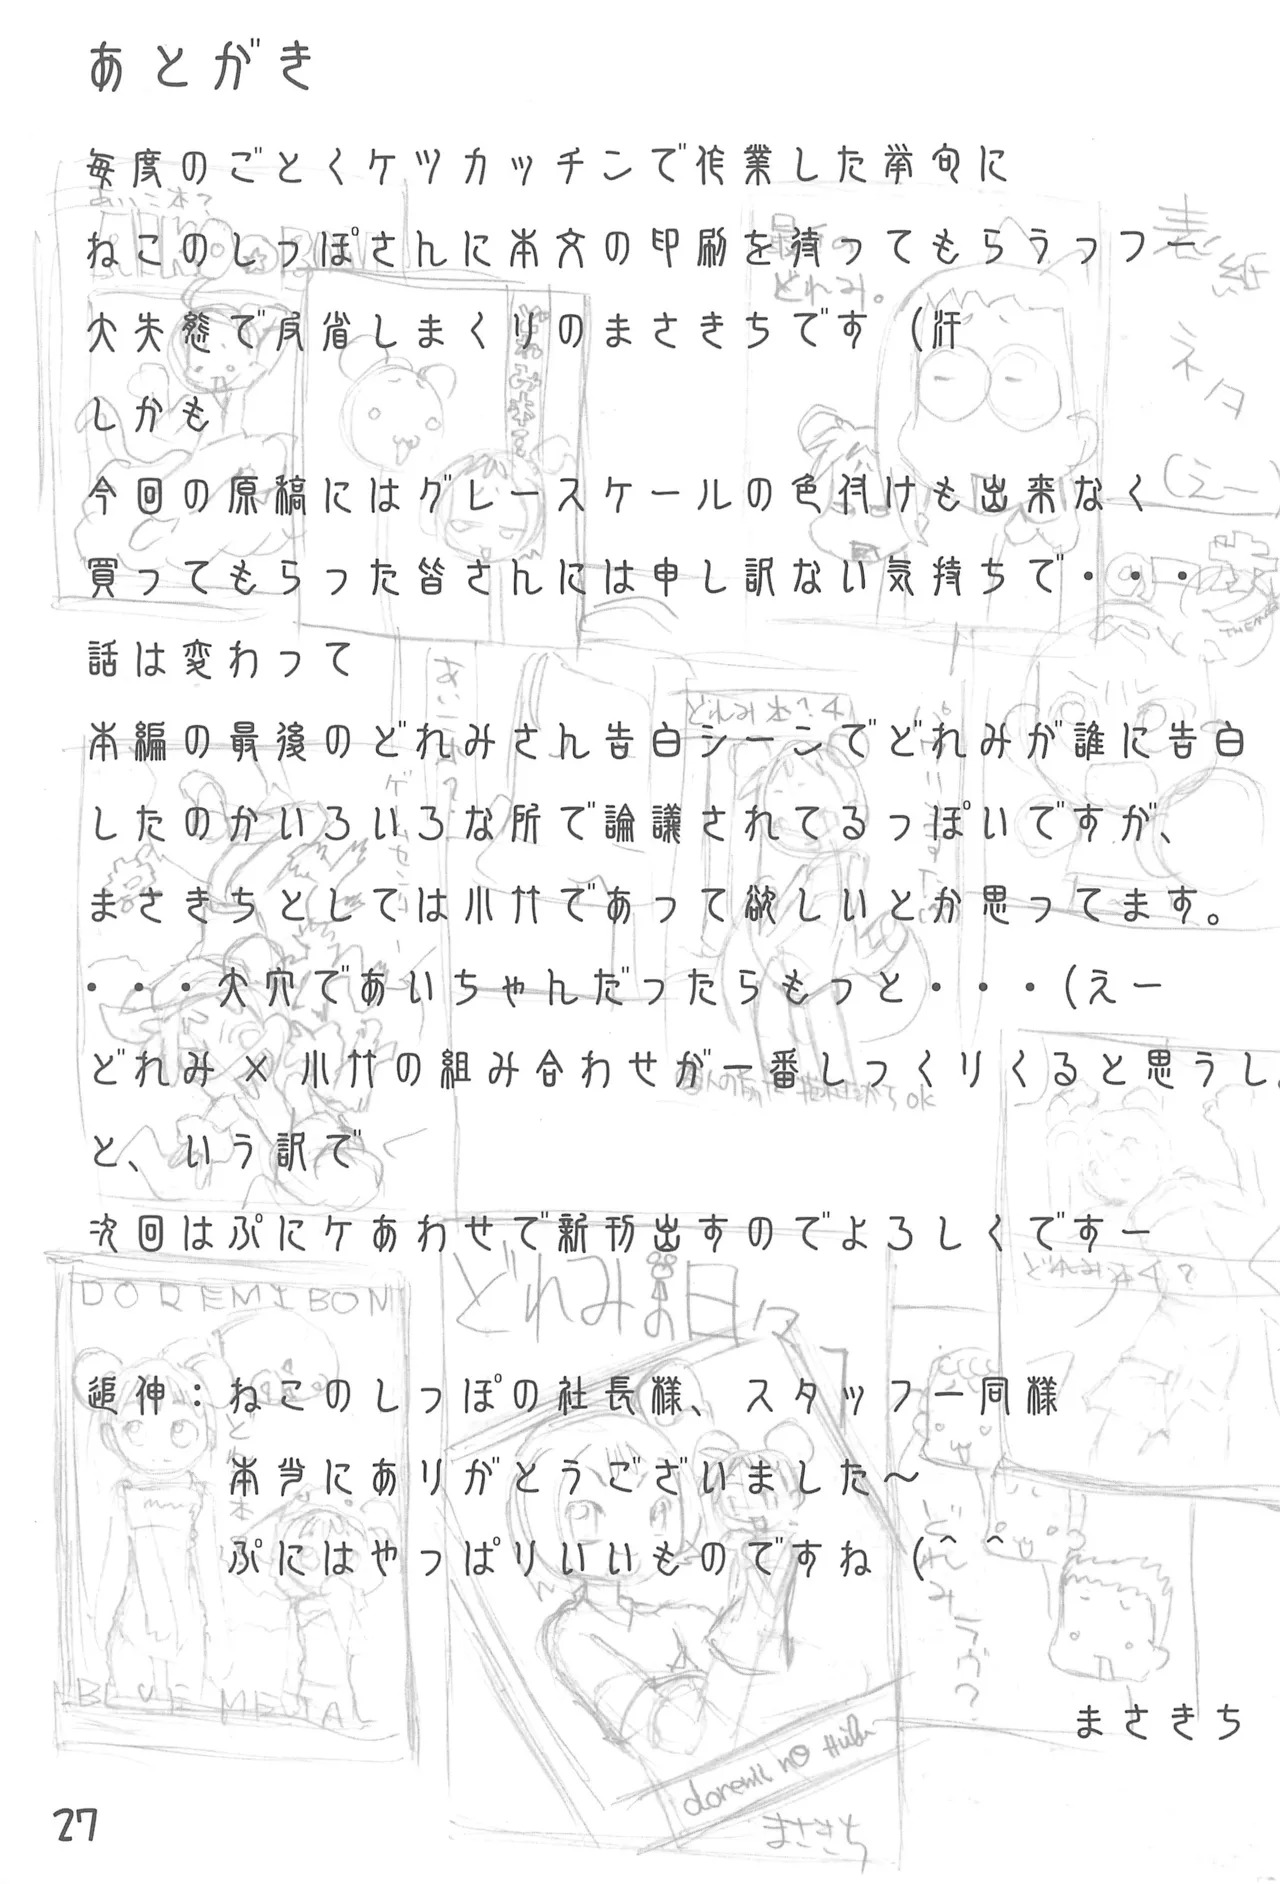 あとがき
毎度のごとくケツカッチンで作業した挙句に
ねこのしっぽさんに本文の印刷を待ってもらうっフー
大失態で反省しまくりのまさきちです（汗
しかも
今回の原稿にはグレースケールの色付けも出来なく
買ってもらった皆さんには申し訳ない気持ちで・・・
話は変わって
本編の最後のどれみさん告白シーンでどれみが誰に告白
したのかいろいろな所で論議されてるっぽいですが、
まさきちとしては小竹であって欲しいとか思ってます。
・・・大穴であいちゃんだったらもっと・・・（えー
どれみ×小竹の組み合わせが一番しっくりくると思うし。
と、いう訳で
次回はぷにケあわせで新刊出すのでよろしくですー
追伸：ねこのしっぽの社長様、スタッフ一同様
本当にありがとうございました～
ぷにはやっぱりいいものですね（＾＾
まさきち
27
あいこ本？
最後の
どれみ。
表紙
ネタ
（えー）
DOREMIBON
BLUE METAL
どれみの日々
どれみ本4？
どれみラヴ？
doremi no Hibi
まさきち